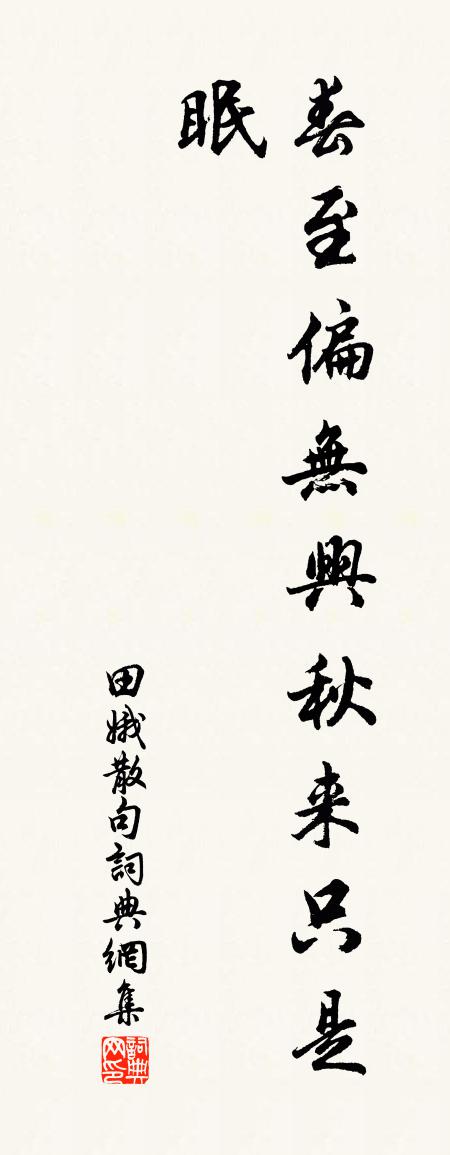 春至偏無興秋来只是
眠
田娥散句詞典網集
詞典
网印